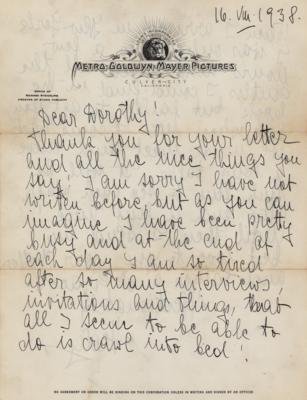 16. VIII. 1938.
METRO-GOLDWYN-MAYER PICTURES
CULVER CITY
CALIFORNIA
OFFICE OF
HOWARD STRICKLING
DIRECTOR OF STUDIO PUBLICITY
Dear Dorothy!
Thank you for your letter
and all the nice things you
say! I am sorry I have not
written before, but as you can
imagine I have been pretty
busy and at the end of
each day I am so tired
after so many interviews,
invitations and things, that
all I seem to be able to
do is crawl into bed!
NO AGREEMENT OR ORDER WILL BE BINDING ON THIS CORPORATION UNLESS IN WRITING AND SIGNED BY AN OFFICER